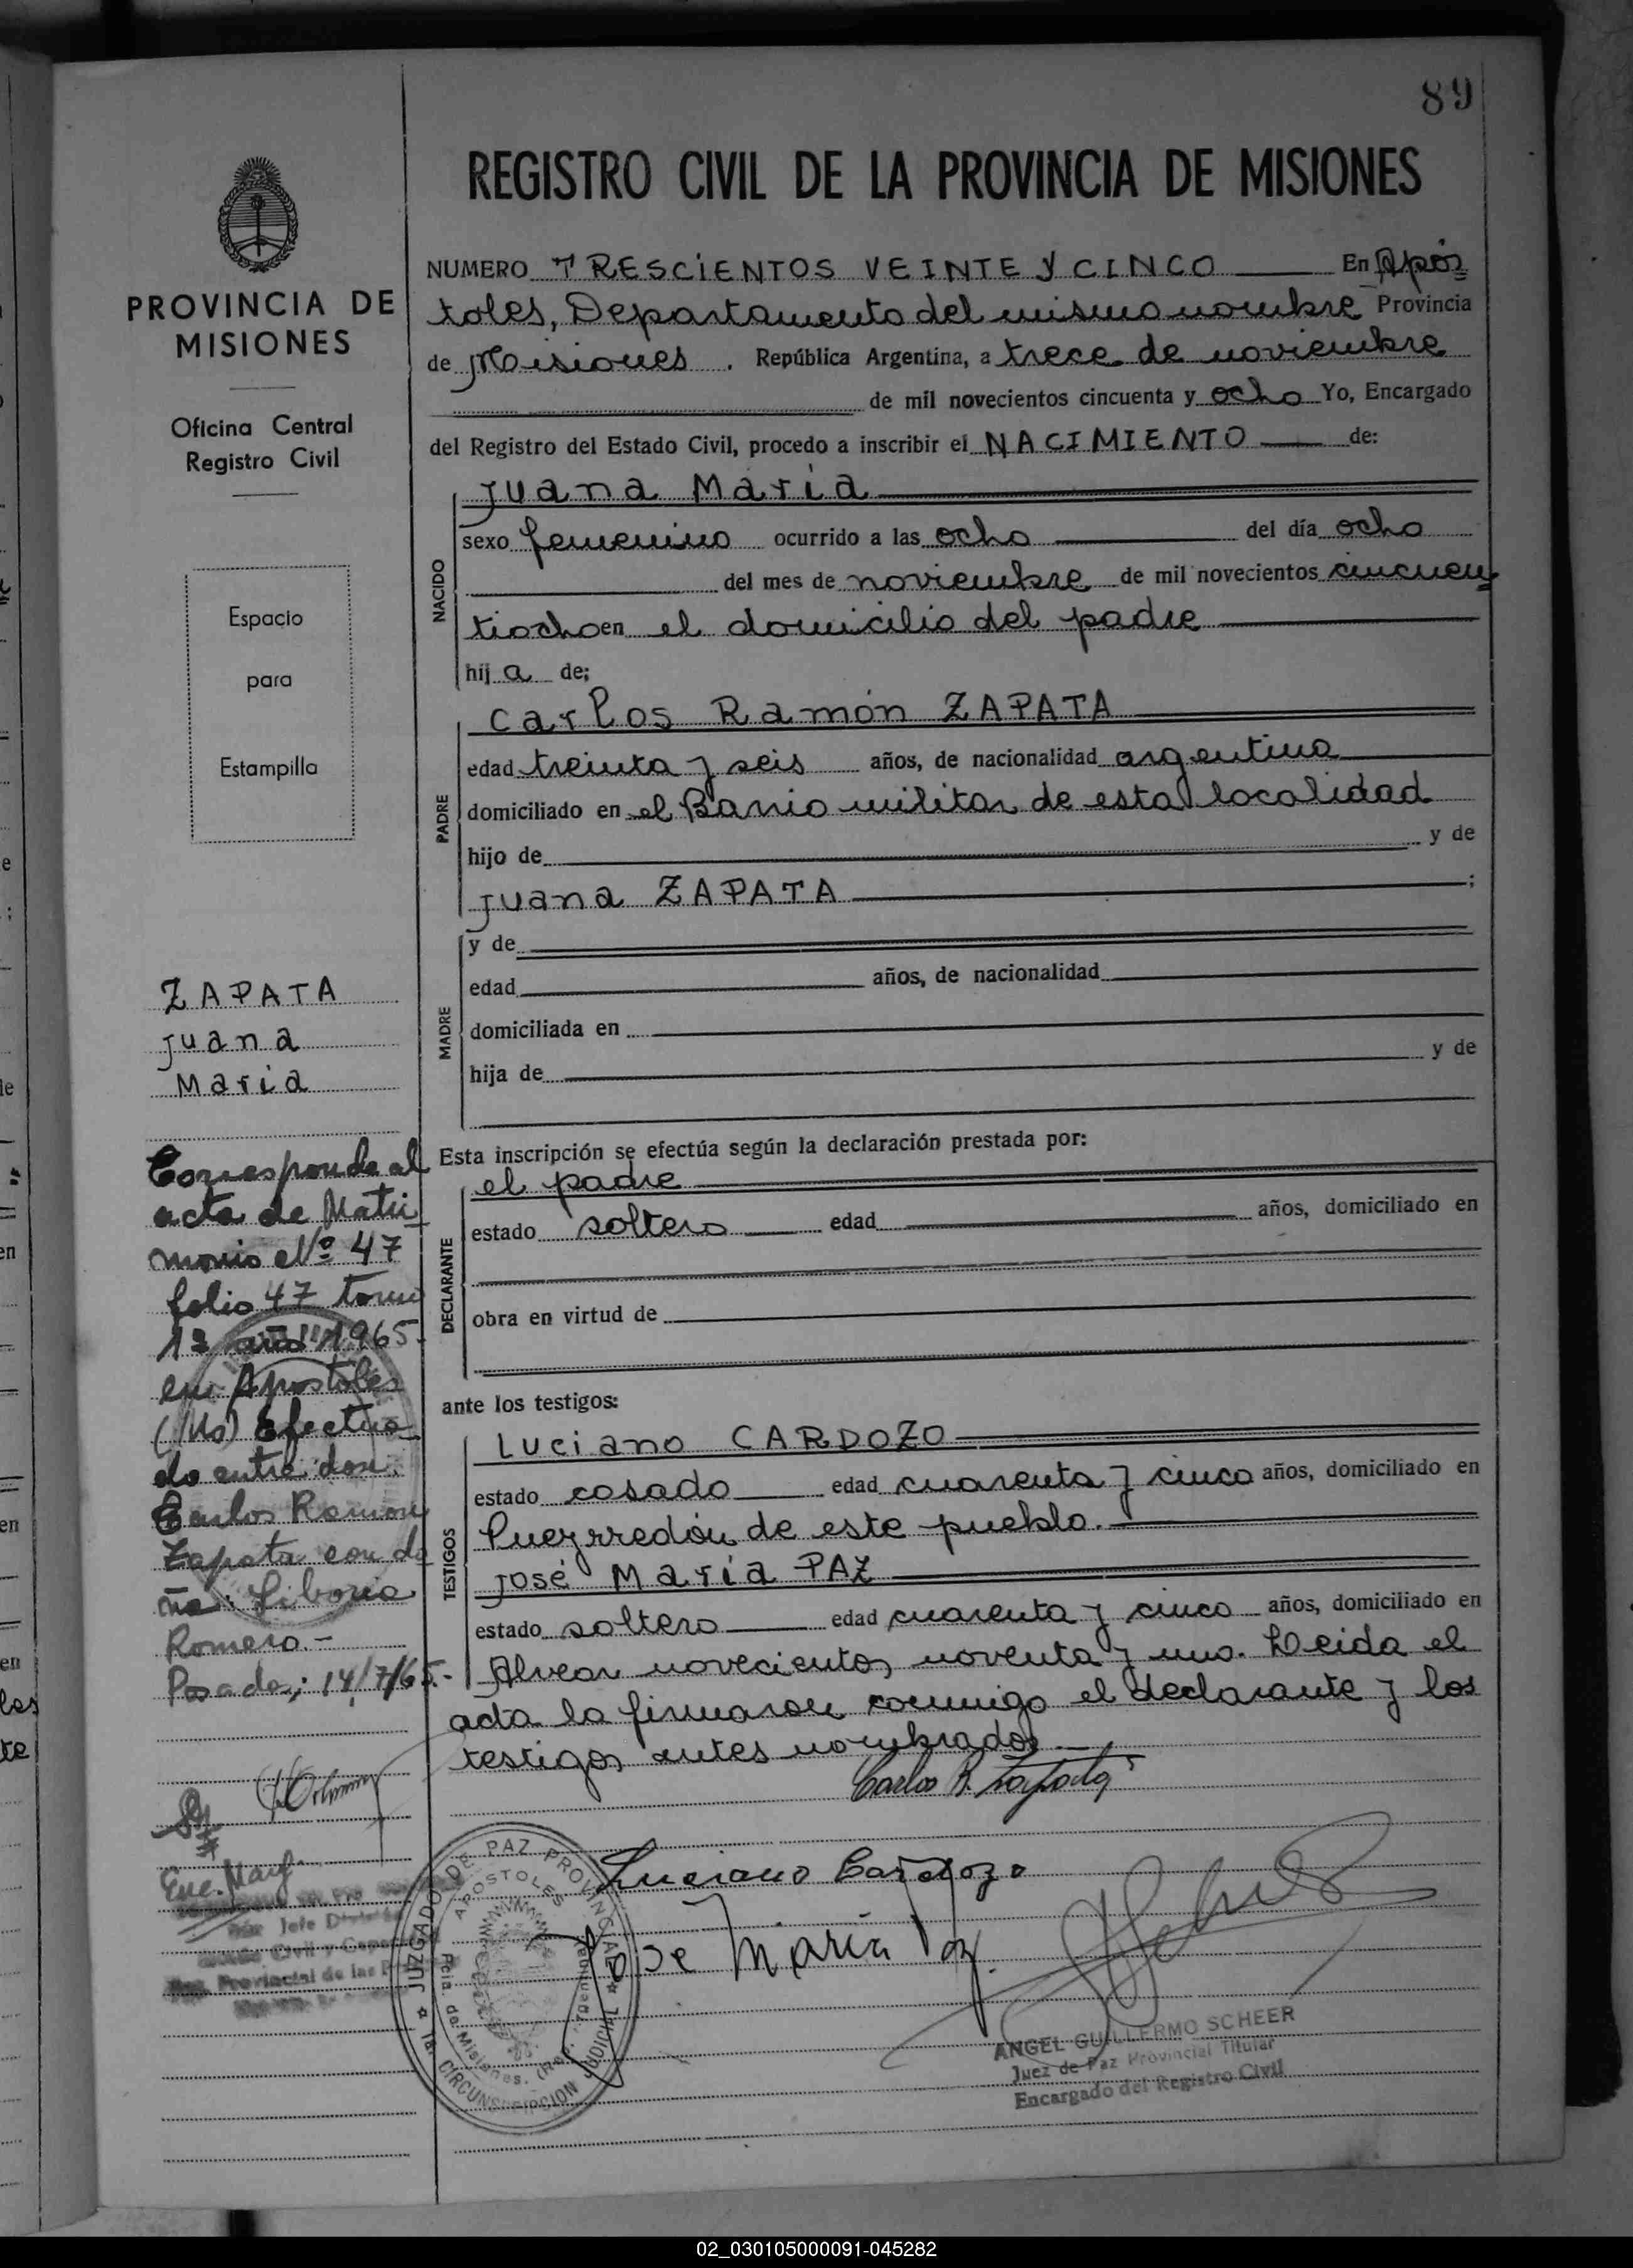 89
REGISTRO CIVIL DE LA PROVINCIA DE MISIONES
PROVINCIA DE
MISIONES
Oficina Central
Registro Civil
Espacio
para
Estampilla
ZAPATA
Juana
Maria
Corresponde al
acta de Matri
monio Nº 47
folio 47 tomo
1º año 1965.
en Apostoles
(Ms) Efectua
do entre don:
Carlos Ramon
Zapata con do
ña: Liboria
Romero.-
Posadas; 14/7/65.-
NUMERO TRESCIENTOS VEINTE Y CINCO En Após
toles, Departamento del mismo nombre Provincia
de Misiones . República Argentina, a trece de noviembre
de mil novecientos cincuenta y ocho Yo, Encargado
del Registro del Estado Civil, procedo a inscribir el NACIMIENTO de:
NACIDO
Juana Maria
sexo femenino ocurrido a las ocho del día ocho
del mes de noviembre de mil novecientos cincuen
tiocho en el domicilio del padre
hij a de;
PADRE
Carlos Ramón ZAPATA
edad treinta y seis años, de nacionalidad argentina
domiciliado en el Barrio militar de esta localidad
hijo de y de
Juana ZAPATA ;
MADRE
y de
edad años, de nacionalidad
domiciliada en
hija de y de
Esta inscripción se efectúa según la declaración prestada por:
DECLARANTE
el padre
estado soltero edad años, domiciliado en
obra en virtud de
ante los testigos:
TESTIGOS
Luciano CARDOZO
estado casado edad cuarenta y cinco años, domiciliado en
Pueyrredón de este pueblo.
José María PAZ
estado soltero edad cuarenta y cinco años, domiciliado en
Alvear novecientos noventa y uno. Leida el
acta la firmaron conmigo el declarante y los
testigos antes nombrados.-
Carlos R. Zapata
Luciano Cardozo
Jose Maria Paz.
JUZGADO DE PAZ PROVINCIAL
APOSTOLES
Pcia. de Misiones. (Rep. Argentina)
1a. CIRCUNSCRIPCION JUDICIAL
ANGEL GUILLERMO SCHEER
Juez de Paz Provincial Titular
Encargado del Registro Civil
Enc. May.
Jefe División
Civil y Capacidad
Reg. Provincial de las
02_030105000091-045282